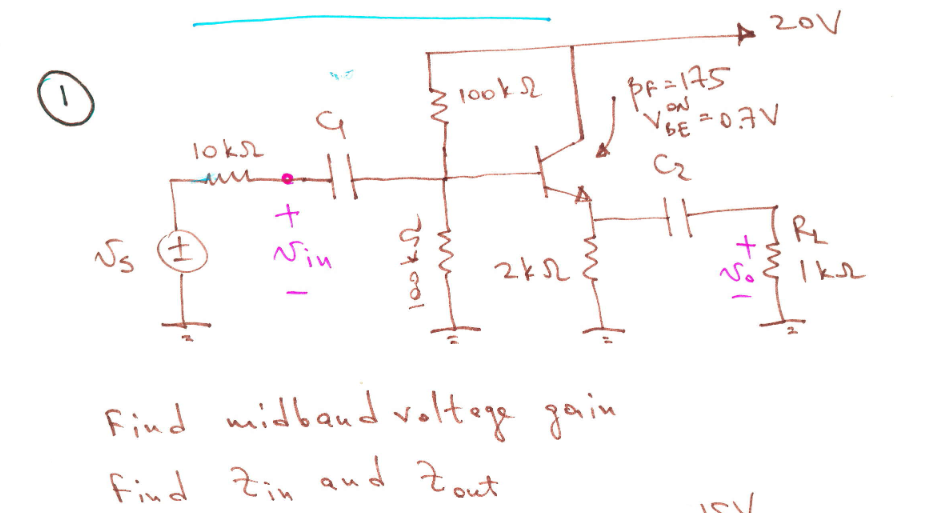 1
20V
100kΩ
βF=175
VBE ON = 0.7V
C1
10kΩ
C2
+
vin
−
vs
±
100kΩ
2kΩ
+
vo
−
RL
1kΩ
Find midband voltage gain
Find Zin and Zout
15V